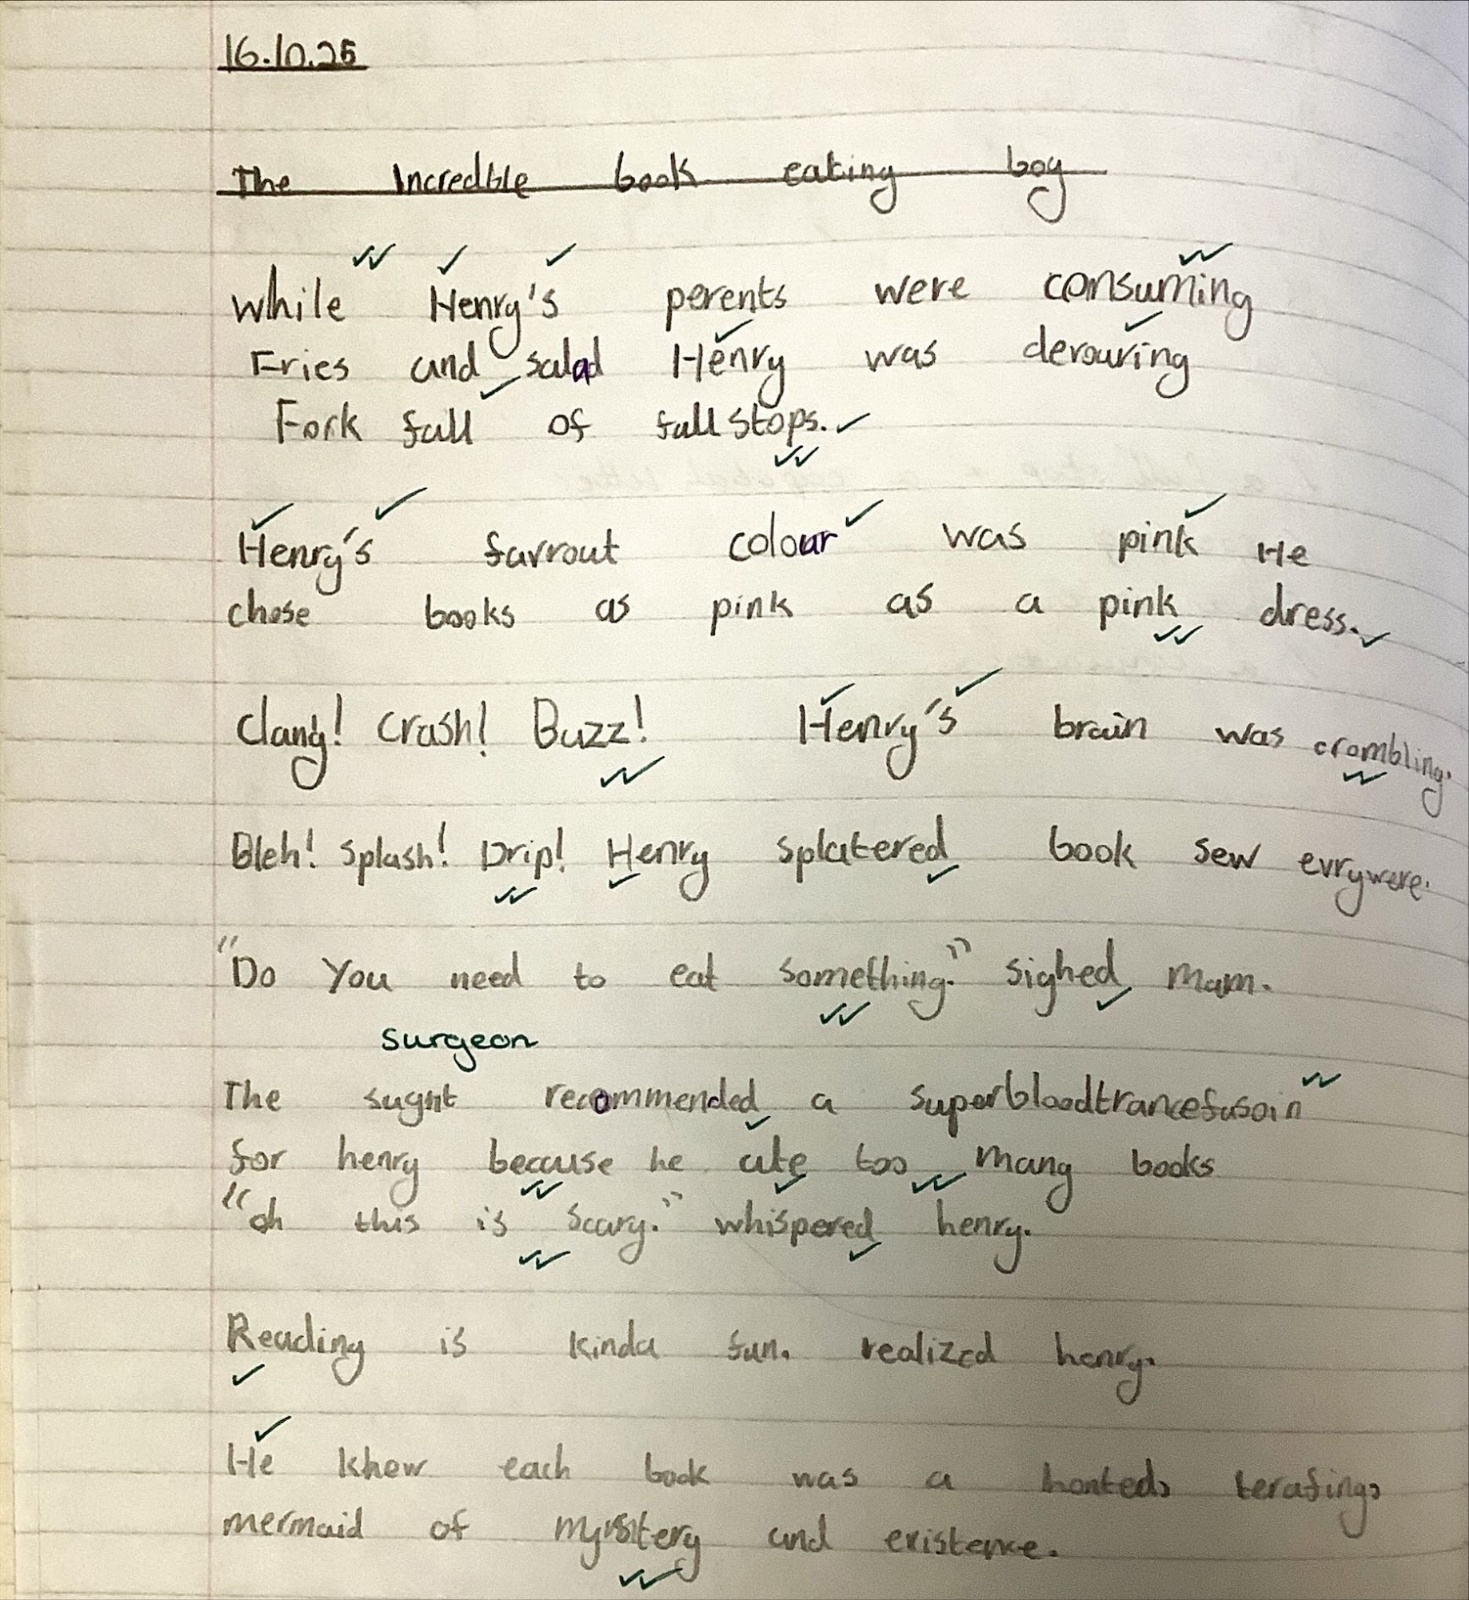 16.10.25
The Incredble book eating boy
While Henry's perents were consuming
Fries and salad Henry was devouring
Fork full of full stops.
Henry's favrout colour was pink He
chose books as pink as a pink dress.
Clang! Crash! Buzz! Henry's brain was crombling.
Bleh! Splash! Drip! Henry splatered book sew evrywere.
"Do You need to eat something." sighed mam.
surgeon
The sugnt recommended a superbloodtrancefusoin
for henry because he ate too many books
"oh this is scary." whispered henry.
Reading is kinda fun. realized henry.
He knew each book was a honted, terafing,
mermaid of mysitery and existence.